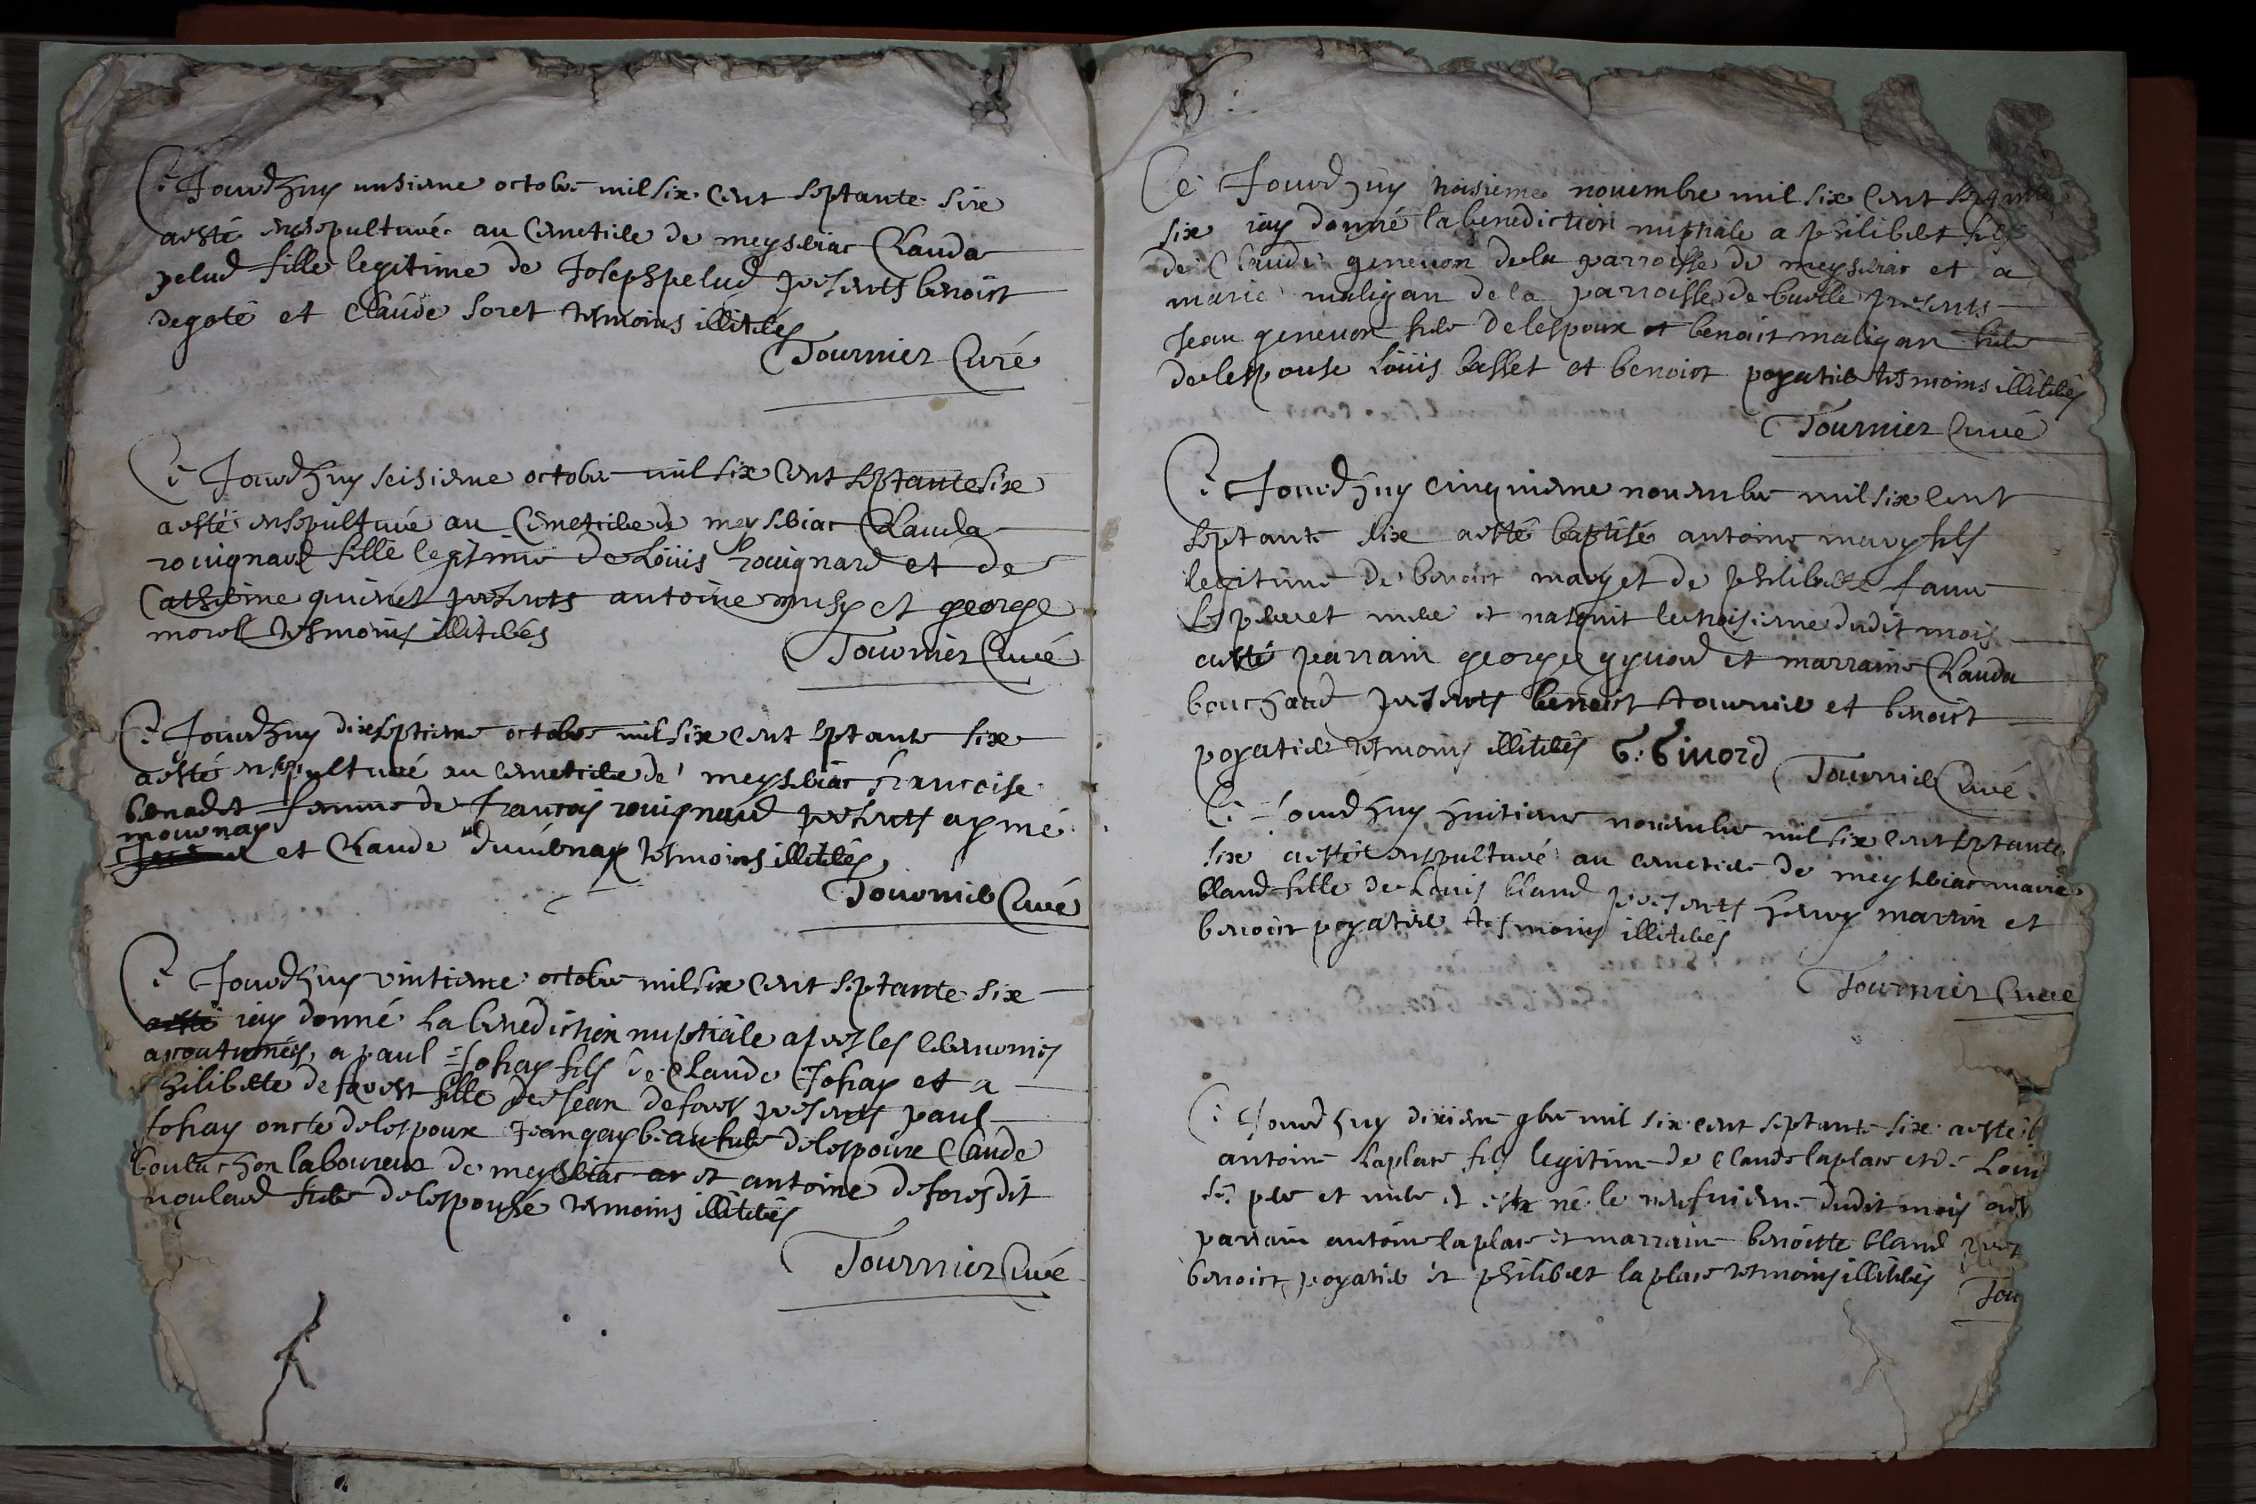 Ce Jourdhuy unsieme octobre mil six cent septante six
a esté ensepulturé au cimetiere de meyseiac Clauda
pelud fille legitime de Joseph pelud presents benoist
degote et Claude soret tesmoins illiterés
Tournier Curé
Ce Jourdhuy seisieme octobre mil six cent septante six
a esté ensepulturé au Cimetiere de meyseiac Clauda
rouignard fille legitime de Loüis rouignard et de
Catherine presents antoine et george
morel tesmoins illiterés
Tournier Curé
Ce Jourdhuy dixseptieme octobre mil six cent septante six
a esté ensepulturé au cimetiere de meyseiac francoise
benadet femme de francois rouignard presents aymé
mournay
et Claude tesmoins illiterés
Tournier Curé
Ce Jourdhuy vintieme octobre mil six cent septante six
a esté iay donné La benediction nuptiale apres les ceremonies
acoutumées, a paul Johay fils de Claude Johay et a
philiberte deforest fille de Jean deforest presents paul
Johay oncle delespoux Jean gay beaufrere delespoux Claude
bouluchon laboureur de meyseiac et antoine defores dit
noulard frere delespouse tesmoins illiterés
Tournier Curé
Ce Jourdhuy troisieme novembre mil six cent septante
six iay donné la benediction nuptiale a philibert fils
de Claude genevon de la parroisse de meyseiac et a
marie maligan de la parroisse de buelle presents
Jean genevon frere delespoux et benoist maligan frere
delespouse Loüis basset et benoist poyatier tesmoins illiterés
Tournier Curé
Ce Jourdhuy cinquieme novembre mil six cent
septante six a esté baptisé antoine mavy fils
legitime de benoist mavy et de philiberte faure
ses pere et mere et nasquit le troisieme dudit mois
a esté parrain george et marraine Clauda
bouchard presents benoist tournier et benoist
poyatier tesmoins illiterés G. Givord Tournier Curé
Ce Jourdhuy huitieme novembre mil six cent septante
six a esté ensepulturé au cimetiere de meyseiac marie
bland fille de Louis bland presents henry martin et
benoist poyatier tesmoins illiterés
Tournier Curé
Ce Jourdhuy dixieme 9bre mil six cent septante six a esté b
antoine Laplace fils legitime de Claude laplace et de Loui
ses pere et mere et est né le neufvieme dudit mois
parrain antoine laplace et marraine benoitte bland
benoist poyatier et philibert laplace tesmoins illiterés
Tou